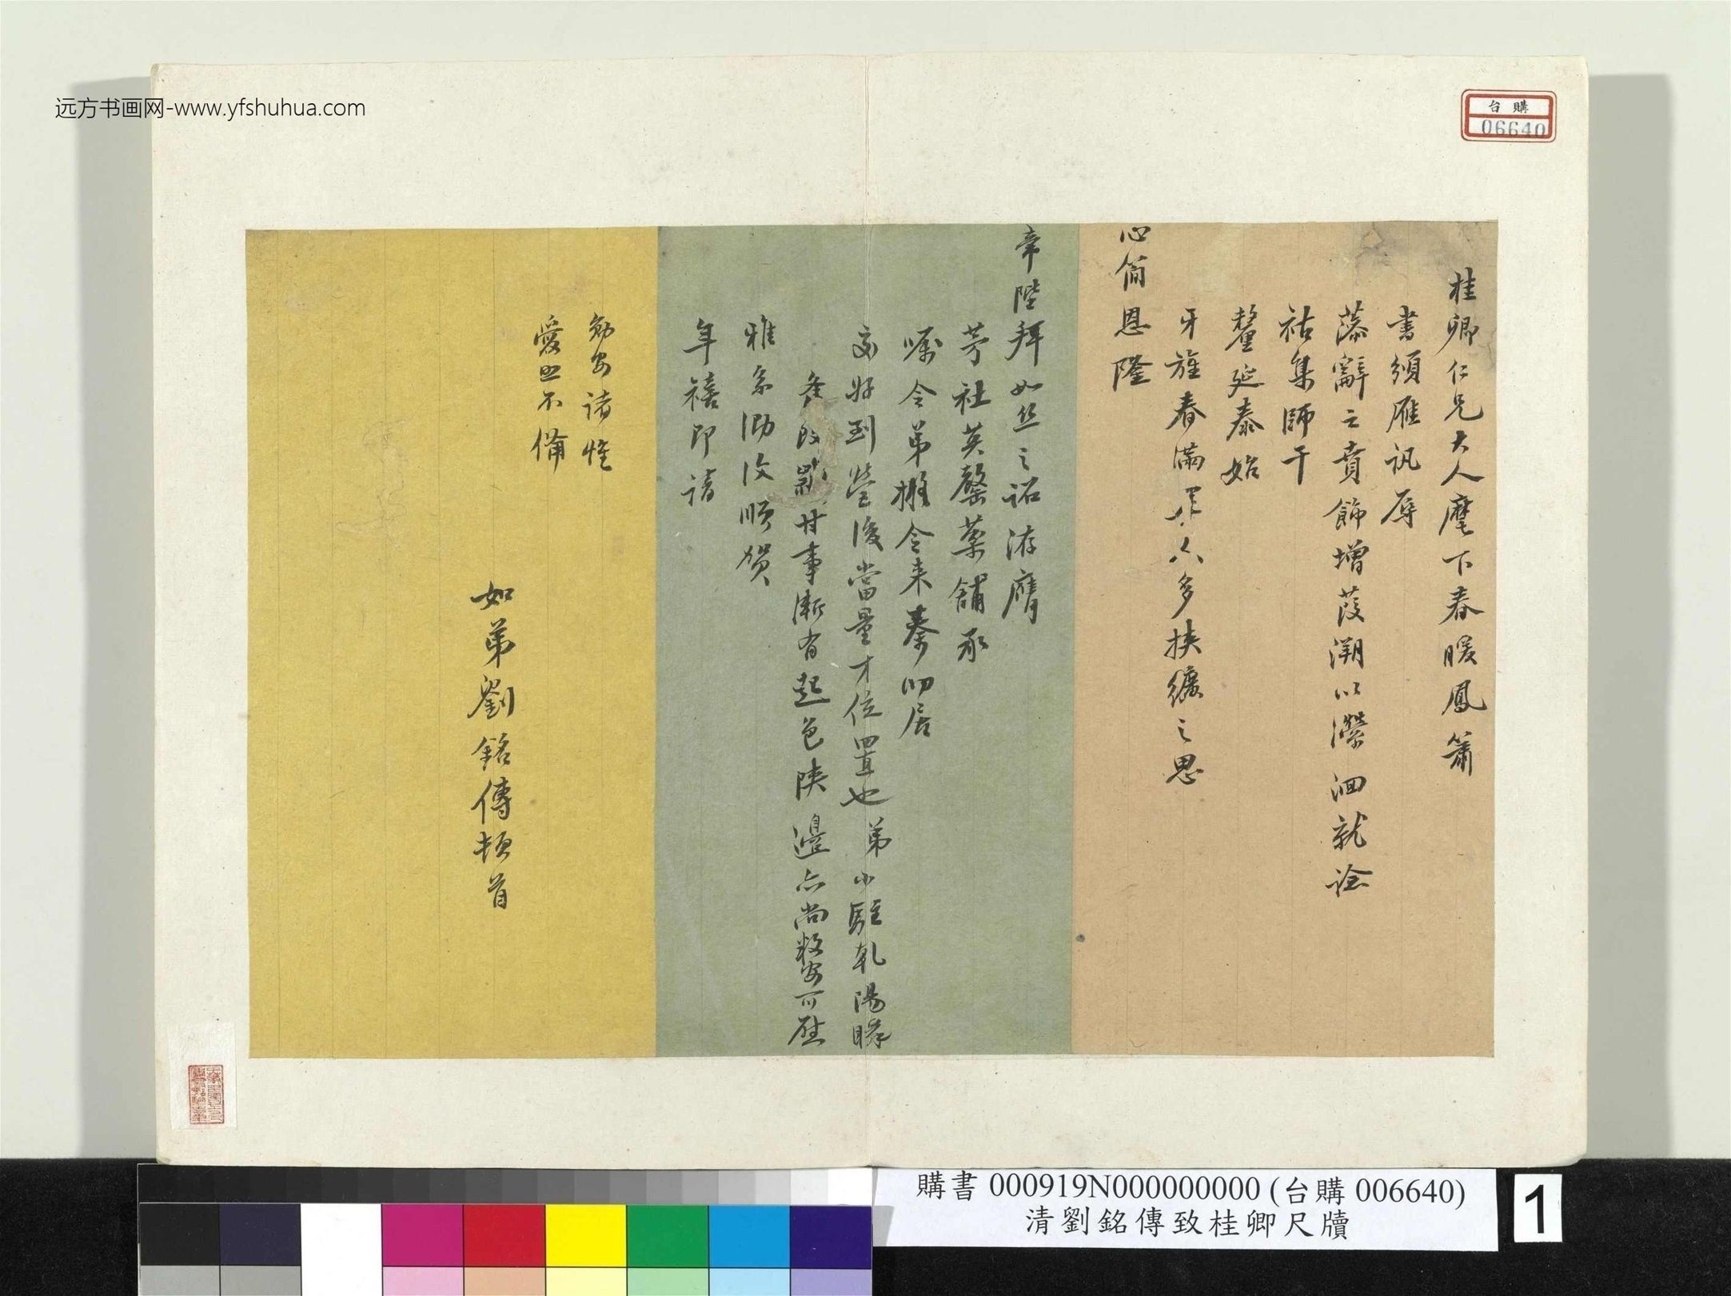 远方书画网-www.yfshuhua.com
台購
06640
桂卿仁兄大人麾下春暖鳳簫
書頒雁訊辱
藻辭之賁飾增葭溯以瀠洄就諗
祜集師干
釐延泰始
牙旌春滿 多挾纊之思
心簡恩隆
帝陛拜如絲之詔洊膺
芳社英馨藥鋪承
囑令弟 令來秦 居
到營後當量才位置也弟小駐乾陽
甘事漸有起色陝邊亦尚敉安可慰
雅系泐復順賀
年禧即請
勛安諸惟
愛照不備
如弟劉銘傳頓首
購書 000919N000000000 (台購 006640)
清劉銘傳致桂卿尺牘
1